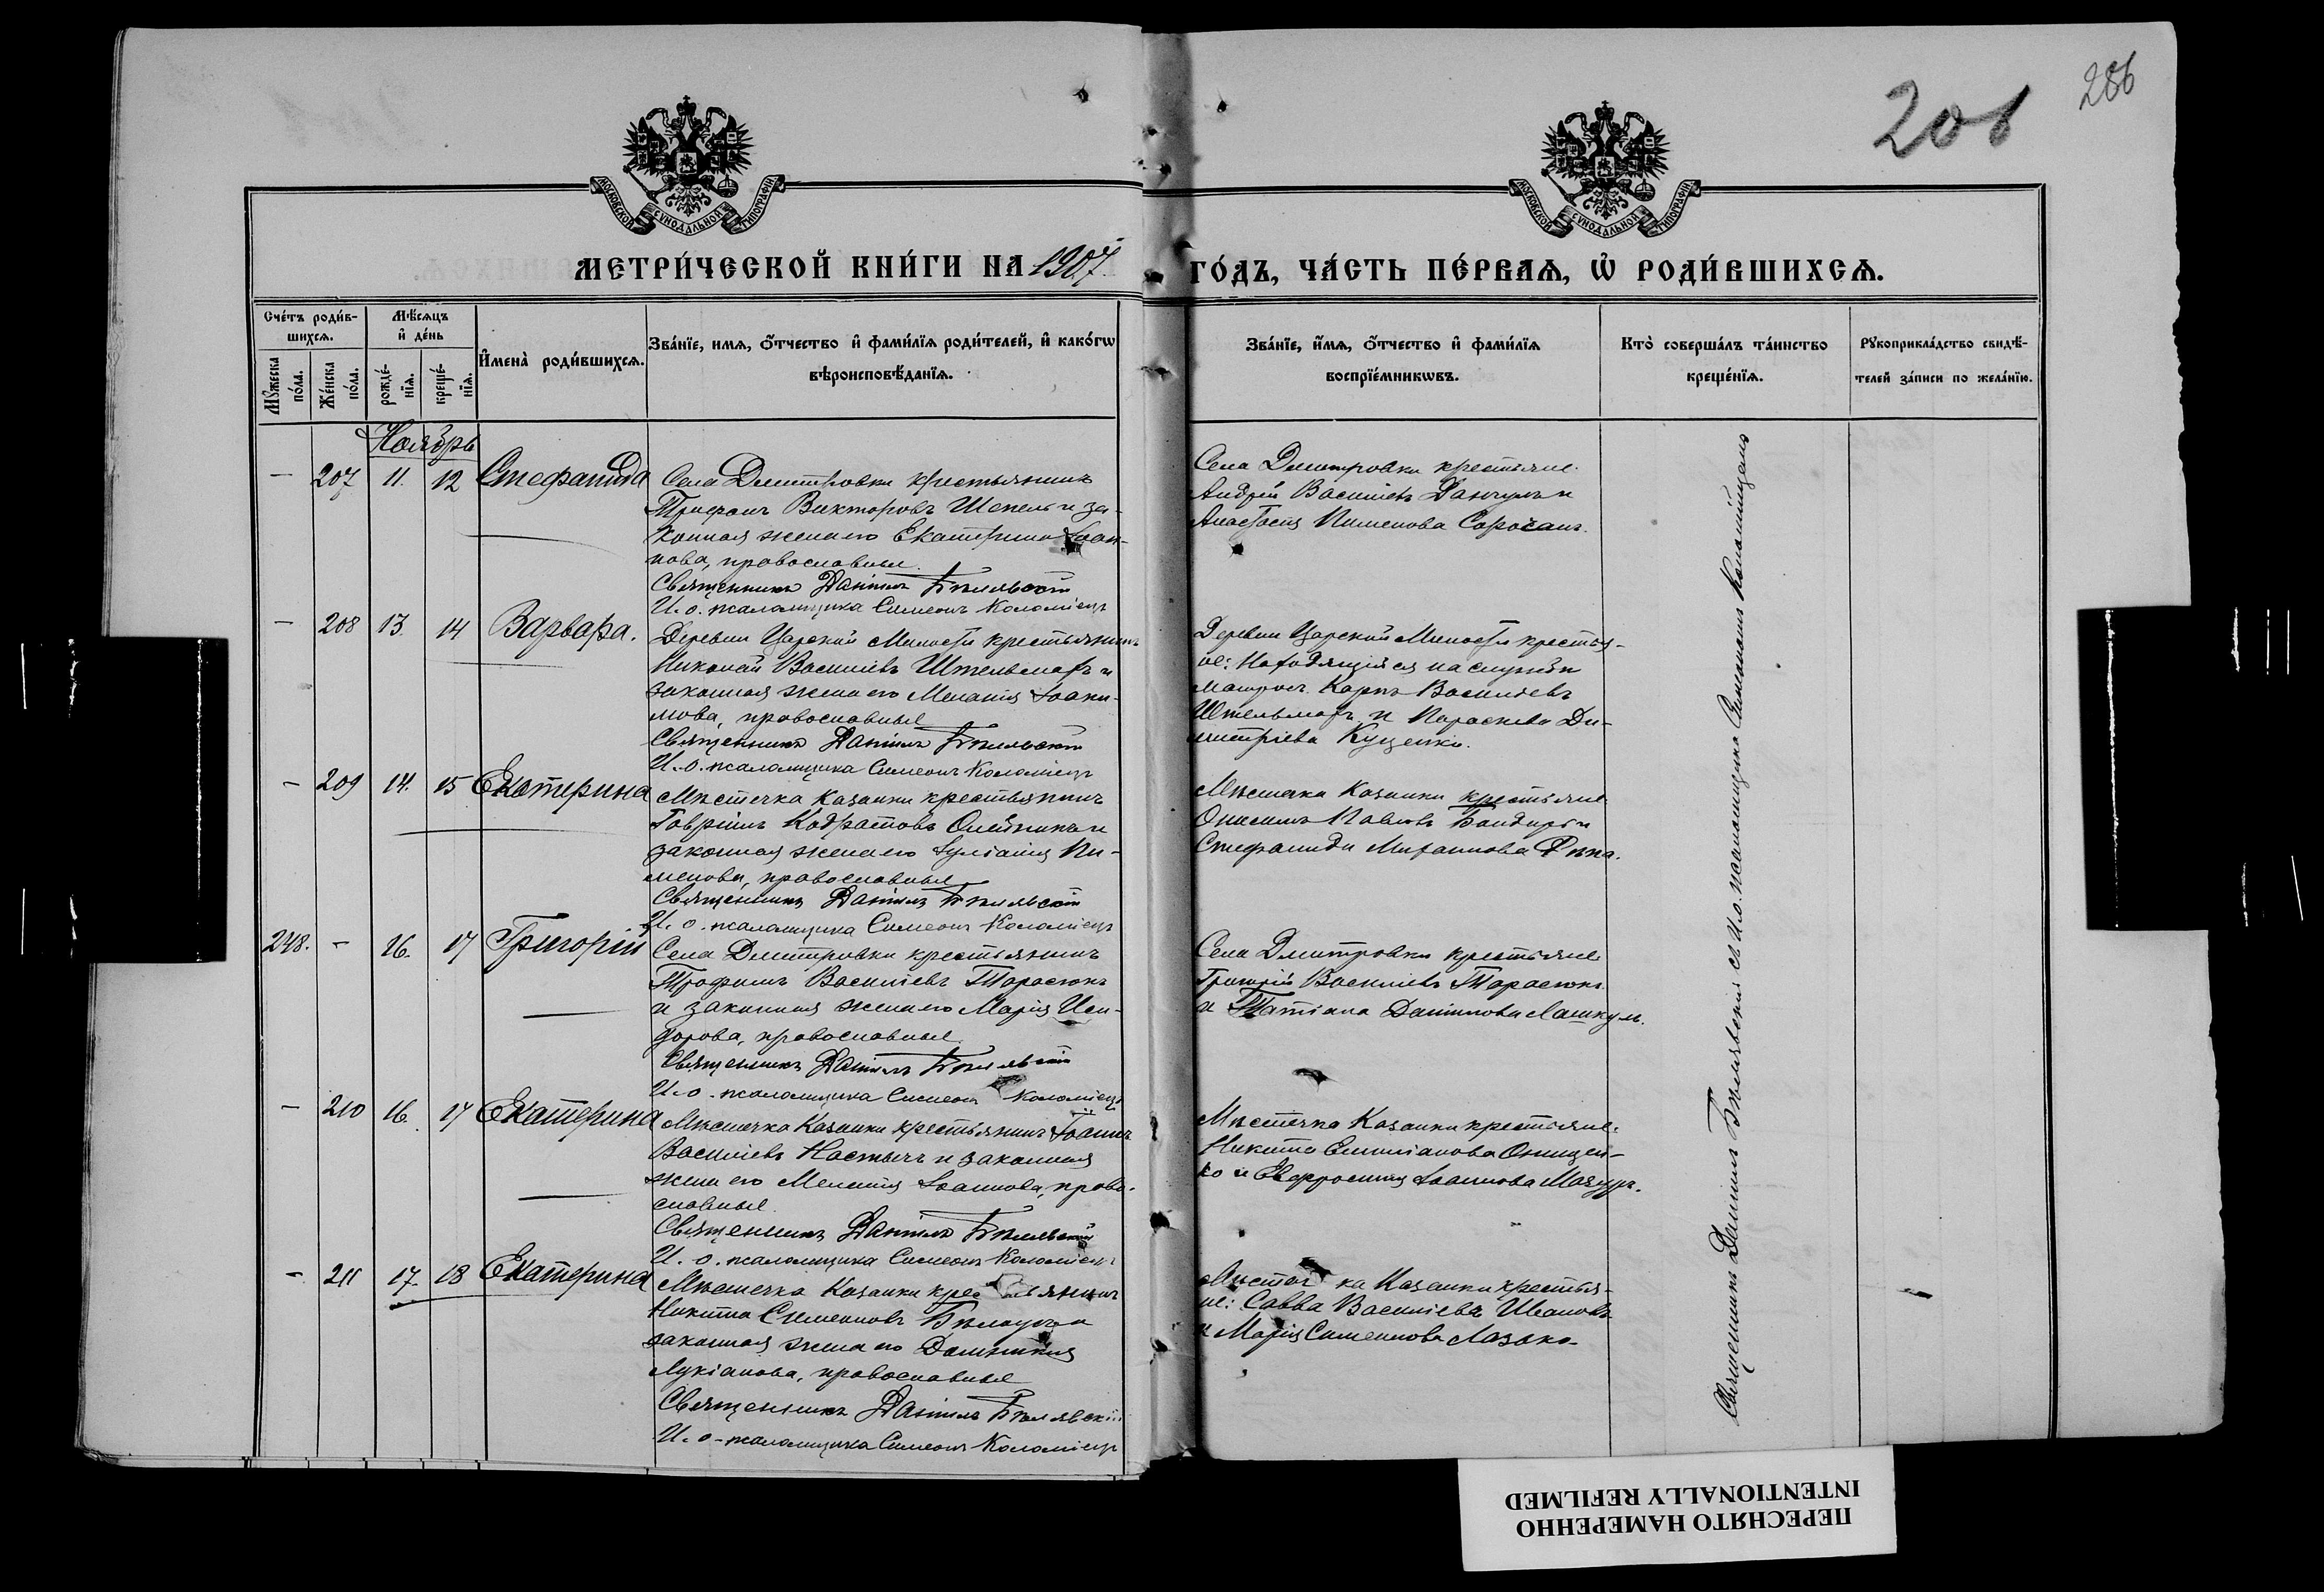 206
286
МОСКОВСКОЙ СУНОДАЛЬНОЙ ТИПОГРАФІИ
МОСКОВСКОЙ СУНОДАЛЬНОЙ ТИПОГРАФІИ
МЕТРИ́ЧЕСКОЙ КНИ́ГИ НА 1907 ГО́ДЪ, ЧА́СТЬ ПЕ́РВАѦ, Ѡ҆ РОДИ́ВШИХСѦ.
Сче́тъ роди́в-
шихсѧ.
Мꙋжеска по́ла.
Же́нска по́ла.
Мѣ́сѧцъ
и҆ де́нь
рожде́-
нїѧ.
креще́-
нїѧ.
И҆мена̀ роди́вшихсѧ.
Зва́нїе, имѧ, о҆́тчество и҆ фами́лїѧ роди́телей, и҆ како́гѡ
вѣроисповѣ́данїѧ.
Зва́нїе, и҆́мѧ, о҆́тчество и҆ фами́лїѧ
воспрїе́мникѡвъ.
Кто̀ соверша́лъ та́инство
креще́нїѧ.
Рꙋкоприкла́дство свидѣ́-
телей за́писи по жела́нїю.
Ноябрь
— 207 11. 12 Стефанида
Села Димитровки крестьянинъ
Трифонъ Викторовъ Шепель и за-
конная жена его Екатерина Іоан-
нова, православные.
Священникъ Даніилъ Бѣлявскій
И. о. псаломщика Симеонъ Коломіецъ
Села Димитровки крестьяне:
Андрей Василіевъ и
Анастасія Пименова Сорочанъ.
— 208 13. 14 Варвара.
Деревни Царской Милости крестьянинъ
Николай Василіевъ Штельмахъ и
законная жена его Меланія Іоаки-
мова, православные
Священникъ Даніилъ Бѣлявскій
И. о. псаломщика Симеонъ Коломіецъ
Деревни Царской Милости крестья-
не: Находящійся на службѣ
матросъ Карпъ Василіевъ
Штельмахъ и Параскева Ди-
митріева Куценко.
— 209 14. 15 Екатерина
Мѣстечка Казанки крестьянинъ
Гавріилъ Кодратовъ Олейникъ и
законная жена его Іуліанія Пи-
менова, православные
Священникъ Даніилъ Бѣлявскій
И. о. псаломщика Симеонъ Коломіецъ
Мѣстечка Казанки крестьяне:
Онисимъ Павловъ Бондарь и
Стефанида Рѣпа.
248. — 16. 17 Григорій
Села Димитровки крестьянинъ
Трофимъ Василіевъ Тарасюкъ
и законная жена его Марія Иси-
дорова, православные.
Священникъ Даніилъ Бѣлявскій
И. о. псаломщика Симеонъ Коломіецъ
Села Димитровки крестьяне
Григорій Василіевъ Тарасюкъ
и Татіана Даніилова Лашкулъ.
— 210 16. 17 Екатерина
Мѣстечка Казанки крестьянинъ Іоаннъ
Василіевъ и законная
жена его Меланія Іоаннова, право-
славные.
Священникъ Даніилъ Бѣлявскій
И. о. псаломщика Симеонъ Коломіецъ
Мѣстечка Казанки крестьяне:
Никита Емиліановъ Онищен-
ко и Евфросинія Іоаннова Мазуръ.
— 211 17. 18 Екатерина
Мѣстечка Казанки крестьянинъ
Никита Симеоновъ Бѣлоусъ и
законная жена его Домникія
Лукіанова, православные
Священникъ Даніилъ Бѣлявскій
И. о. псаломщика Симеонъ Коломіецъ
Мѣстечка Казанки крестья-
не: Савва Василіевъ Ивановъ
и Марія Симеонова Лазько
Священникъ Даніилъ Бѣлявскій съ И. о. псаломщика Симеономъ Коломійцемъ
ПЕРЕСНЯТО НАМЕРЕННО
INTENTIONALLY REFILMED